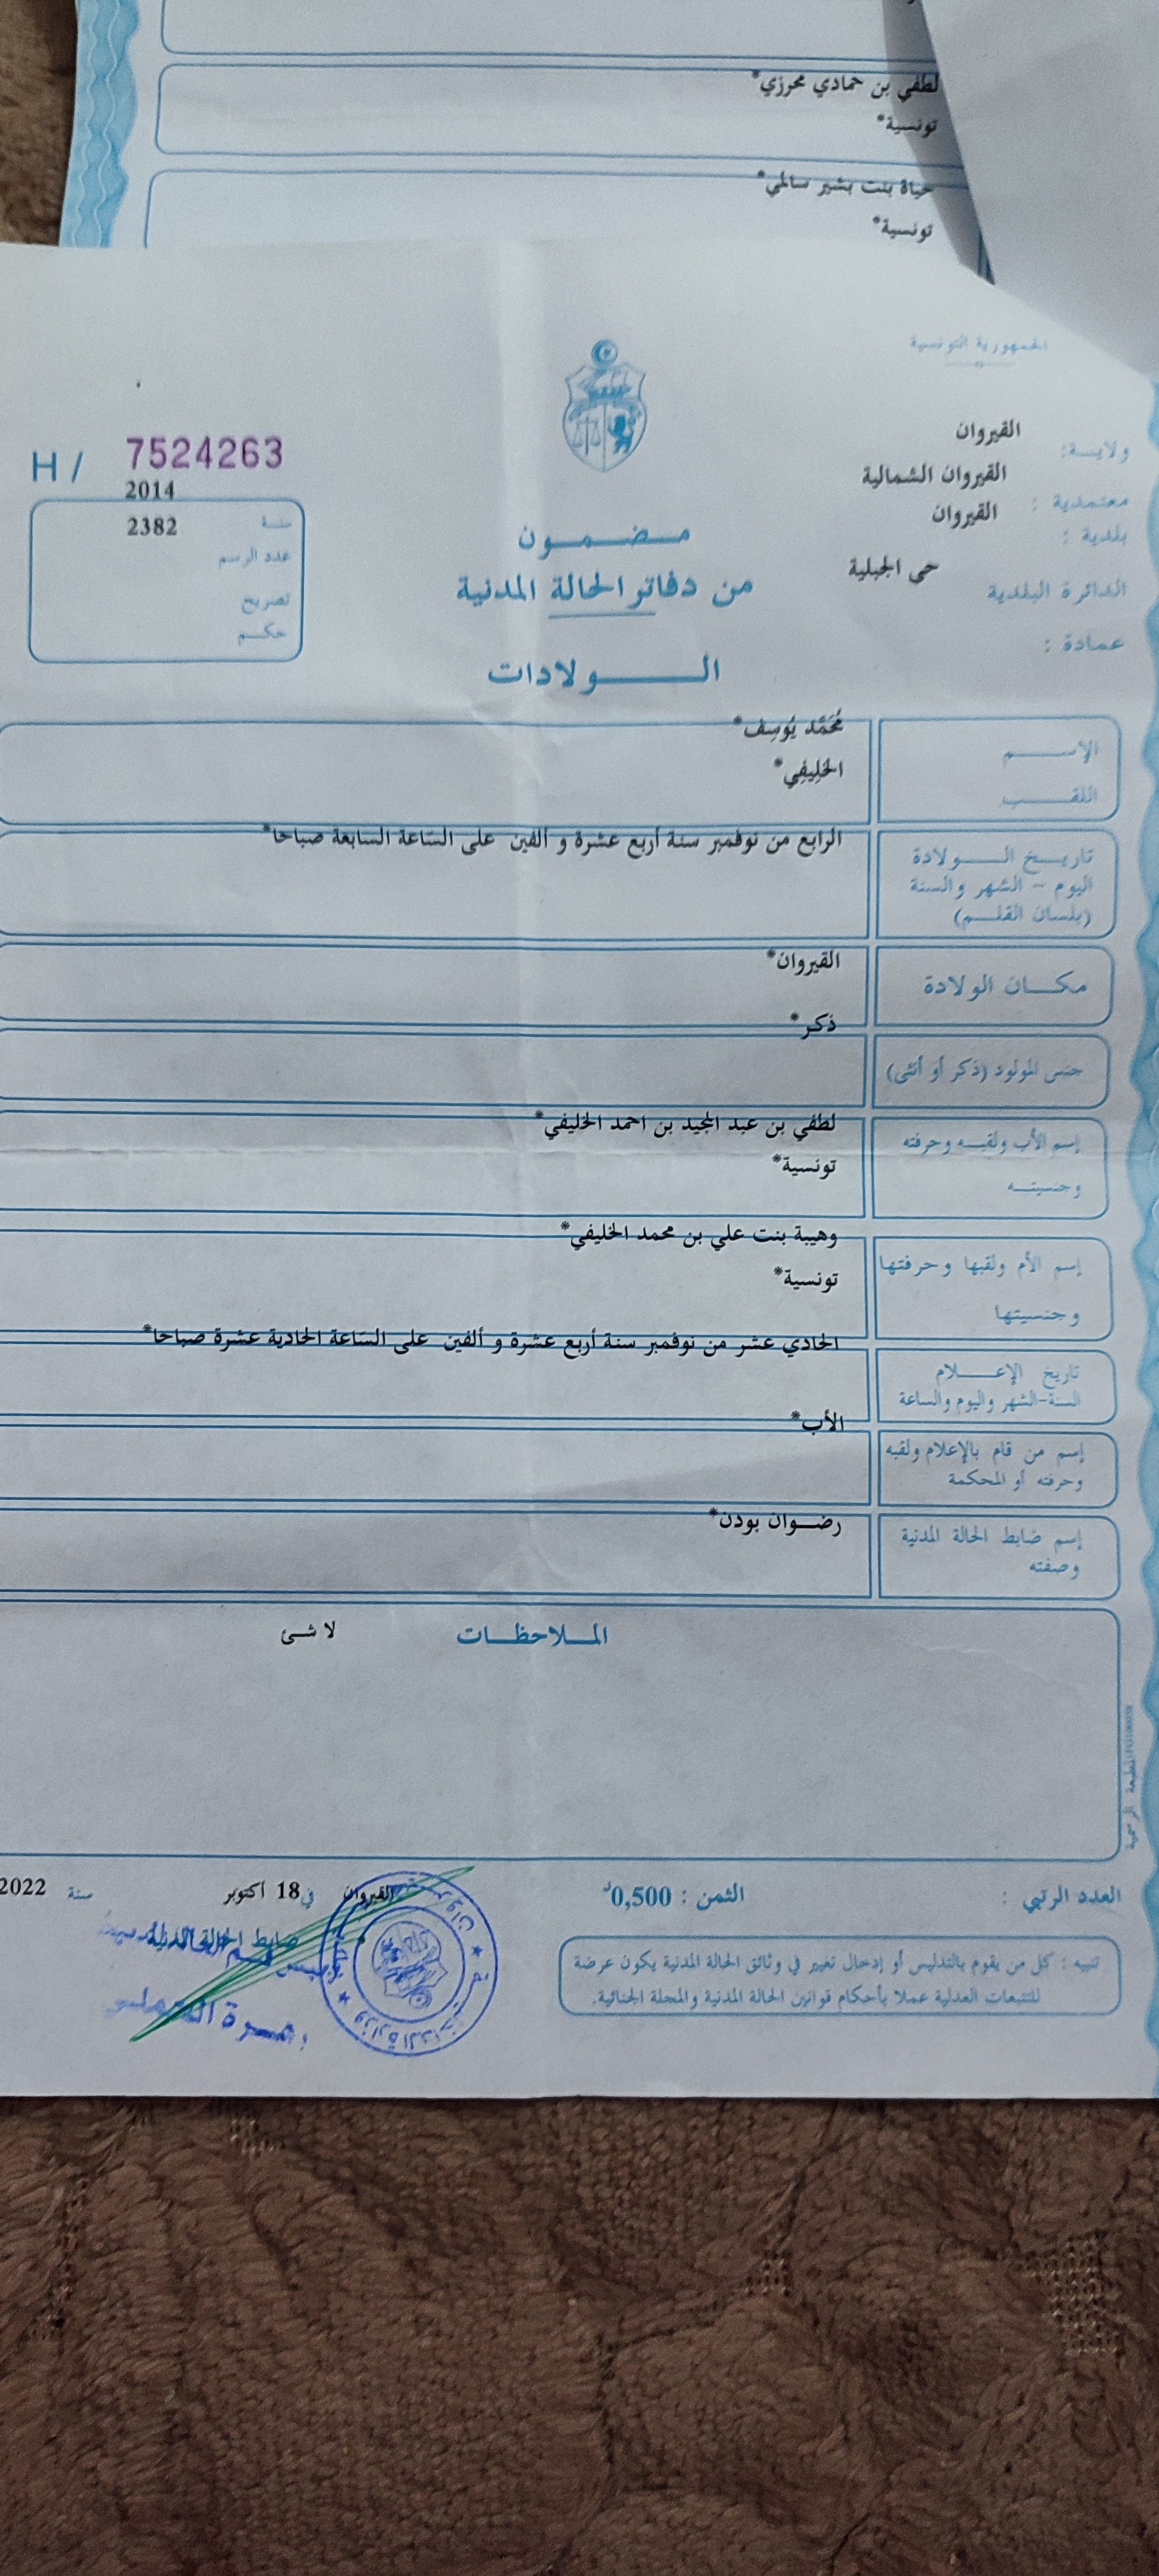 لطفي بن حمادي محرزي*
تونسية*
حياة بنت بشير سالمي*
تونسية*
الجمهورية التونسية
ولايـة: القيروان
معتمدية : القيروان الشمالية
بلدية : القيروان
الدائرة البلدية حي الجبلية
عمادة :
H / 7524263
سنة 2014
عدد الرسم 2382
تصريح
حكم
مضمون
من دفاتر الحالة المدنية
الولادات
الإسم محمد يوسف*
اللقب الخليفي*
تاريخ الولادة
اليوم - الشهر والسنة
(بلسان القلم)
الرابع من نوفمبر سنة أربع عشرة و ألفين على الساعة السابعة صباحا*
مكان الولادة القيروان*
جنس المولود (ذكر أو أنثى) ذكر*
إسم الأب ولقبه وحرفته
وجنسيته
لطفي بن عبد المجيد بن احمد الخليفي*
تونسية*
إسم الأم ولقبها وحرفتها
وجنسيتها
وهيبة بنت علي بن محمد الخليفي*
تونسية*
تاريخ الإعلام
السنة-الشهر واليوم والساعة
الحادي عشر من نوفمبر سنة أربع عشرة و ألفين على الساعة الحادية عشرة صباحا*
إسم من قام بالإعلام ولقبه
وحرفته أو المحكمة
الأب*
إسم ضابط الحالة المدنية
وصفته
رضوان بودن*
الملاحظات لا شئ
العدد الرتبي :
الثمن : 0,500د
القيروان في 18 أكتوبر سنة 2022
ضابط الحالة المدنية
تنبيه : كل من يقوم بالتدليس أو إدخال تغيير في وثائق الحالة المدنية يكون عرضة
للتتبعات العدلية عملا بأحكام قوانين الحالة المدنية والمجلة الجنائية.
المطبعة الرسمية